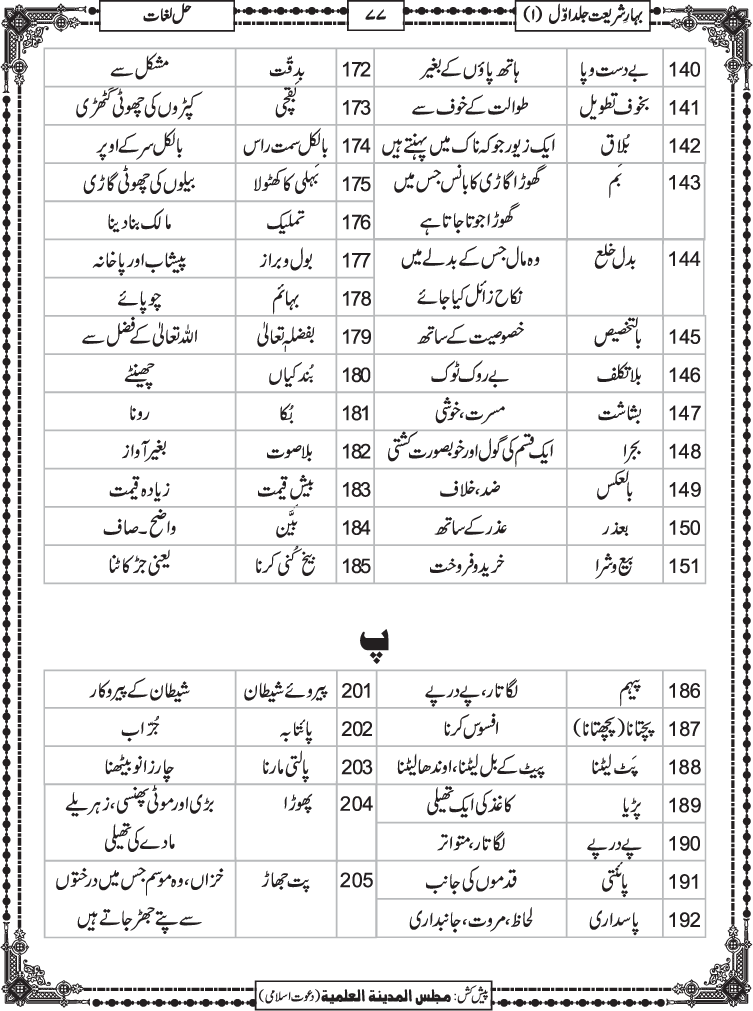 بہارِ شریعت جلد اوّل (۱) ۷۷ حل لغات
140 بے دست و پا ہاتھ پاؤں کے بغیر 172 بدِقّت مشکل سے
141 بخوف تطویل طوالت کے خوف سے 173 بُقچی کپڑوں کی چھوٹی گٹھڑی
142 بُلاق ایک زیور جو کہ ناک میں پہنتے ہیں 174 بالکل سمت راس بالکل سر کے اوپر
143 بَم گھوڑا گاڑی کا بانس جس میں 175 بَہلی کا کھٹولا بیلوں کی چھوٹی گاڑی
گھوڑا جوتا جاتا ہے 176 تملیک مالک بنا دینا
144 بدل خلع وہ مال جس کے بدلے میں 177 بول و براز پیشاب اور پاخانہ
نکاح زائل کیا جائے 178 بہائم چوپائے
145 بالتخصیص خصوصیت کے ساتھ 179 بفضلہٖ تعالیٰ اللہ تعالیٰ کے فضل سے
146 بلا تکلف بے روک ٹوک 180 بُندکیاں چھینٹے
147 بشاشت مسرت، خوشی 181 بُکا رونا
148 بجرا ایک قسم کی گول اور خوبصورت کشتی 182 بلاصوت بغیر آواز
149 بالعکس ضد، خلاف 183 بیش قیمت زیادہ قیمت
150 بعذر عذر کے ساتھ 184 بَیِّن واضح۔صاف
151 بیع و شرا خرید و فروخت 185 بیخ کُنی کرنا یعنی جڑ کاٹنا
پ
186 پیہم لگاتار، پے درپے 201 پیروئے شیطان شیطان کے پیروکار
187 پچتانا (پچھتانا) افسوس کرنا 202 پائتابہ جُرّاب
188 پَٹ لیٹنا پیٹ کے بل لیٹنا، اوندھا لیٹنا 203 پالتی مارنا چار زانو بیٹھنا
189 پڑیا کاغذ کی ایک تھیلی 204 پھوڑا بڑی اور موٹی پھنسی، زہریلے
190 پے درپے لگاتار، متواتر مادے کی تھیلی
191 پائنتی قدموں کی جانب 205 پت جھاڑ خزاں، وہ موسم جس میں درختوں
192 پاسداری لحاظ، مروت، جانبداری سے پتے جھڑ جاتے ہیں
پیش کش: مجلس المدینة العلمیة (دعوت اسلامی)